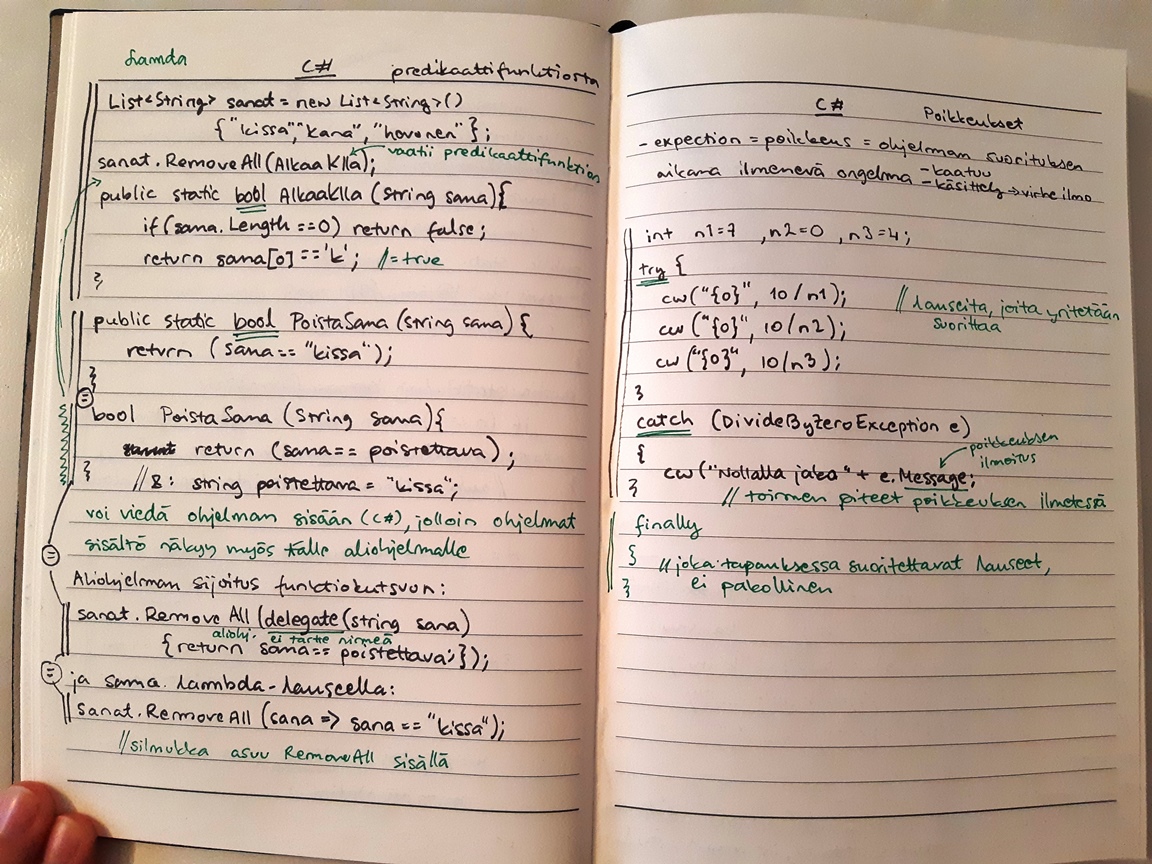 Lamda
C# predikaattifunktiosta
List<String> sanat = new List<String>()
{"kissa" "kana", "hevonen"};
sanat.RemoveAll(AlkaaKlla); vaatii predikaattifunktion
public static bool AlkaaKlla (String sana){
if (sana.Length ==0) return false;
return sana[0] == 'k'; //=true
}
public static bool PoistaSana (String sana) {
return (sana == "kissa");
}
bool PoistaSana (String sana){
return (sana == poistettava);
} //8: string poistettava = "kissa";
voi viedä ohjelman sisään (C#), jolloin ohjelmat
sisältö näkyy myös tälle aliohjelmalle
Aliohjelman sijoitus funktiokutsuun:
sanat.Remove All (delegate (string sana)
aliohj. ei tartte nimeä
{return sana == poistettava;});
ja sama lambda-lauseella:
sanat.RemoveAll (sana => sana == "kissa");
//silmukka asuu RemoveAll sisällä
C# Poikkeukset
- expection = poikkeus = ohjelman suorituksen
aikana ilmenevä ongelma - kaatuu
- käsittely → virhe ilmo
int n1=7 , n2=0 , n3=4;
try {
cw("{0}", 10/n1); // lauseita, joita yritetään
suorittaa
cw ("{0}", 10/n2);
cw ("{0}", 10/n3);
}
catch (DivideByZeroException e)
{ poikkeuksen
ilmoitus
cw ("Nollalla jako" + e.Message;
} // toimenpiteet poikkeuksen ilmetessä
finally
{ // joka tapauksessa suoritettavat lauseet,
} ei pakollinen